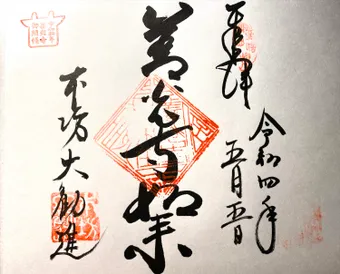 奉拝
令和四年
五月五日
善光寺如来
本坊大勧進